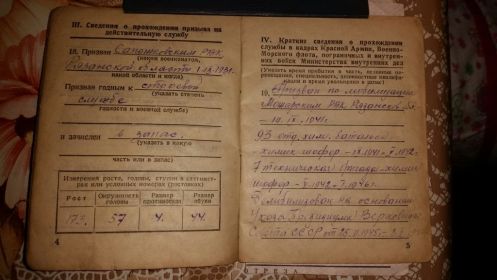 III. Сведения о прохождении призыва на
действительную службу
18. Призван Сапожковским РВК
(каким военкоматом,
Рязанской области 1938г.
какой области и когда)
Признан годным к строевой
(указать степень
службе
годности к военной службе)
и зачислен в запас.
(указать в какую
часть или в запас)
Измерения роста, головы, ступни в сантимет-
рах или условных номерах (ростовках)
Рост
Окружность головы
Размер противогаза
Размер обуви
173. 57 4. 44.
4
IV. Краткие сведения о прохождении
службы в кадрах Красной Армии, Военно-
Морского флота, пограничных и внутрен-
них войск Министерства внутренних дел
(Указать время прибытия в часть, полковые пе-
ремещения, специальность, должностная квалифи-
кация и время увольнения в запас)
19. Призван по мобилизации
Можарским РВК Рязанской обл.
IX.1941г.
93 отд. хим. батальон
химик шофер - IX.1941 - V.1942
7 техническая бригада химик
шофер - V.1942 - 1946г.
Демобилизован на основании
Указа Президиума Верховного
Совета СССР от 25.9.1945г.
5
ОТРЕЗА